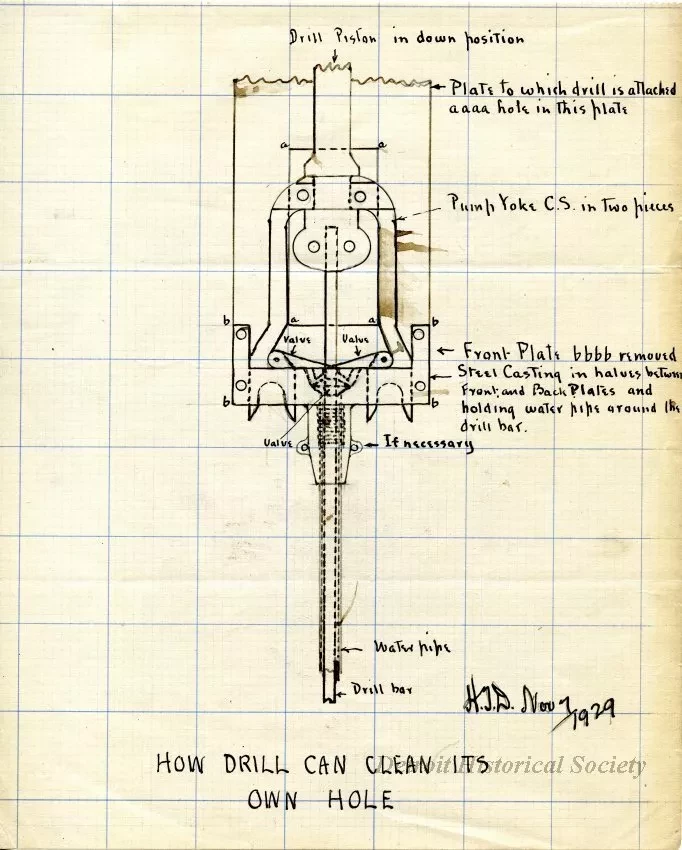 Drill Piston in down position
Plate to which drill is attached
aaaa hole in this plate
a a
Pump Yoke C.S. in two pieces
b a a b
Valve Valve
Front Plate bbbb removed
Steel Casting in halves between
Front and Back Plates and
holding water pipe around the
drill bar.
b b
Valve
If necessary
Water pipe
Drill bar
H.J.D. Nov 7
1929
HOW DRILL CAN CLEAN ITS
OWN HOLE
Detroit Historical Society